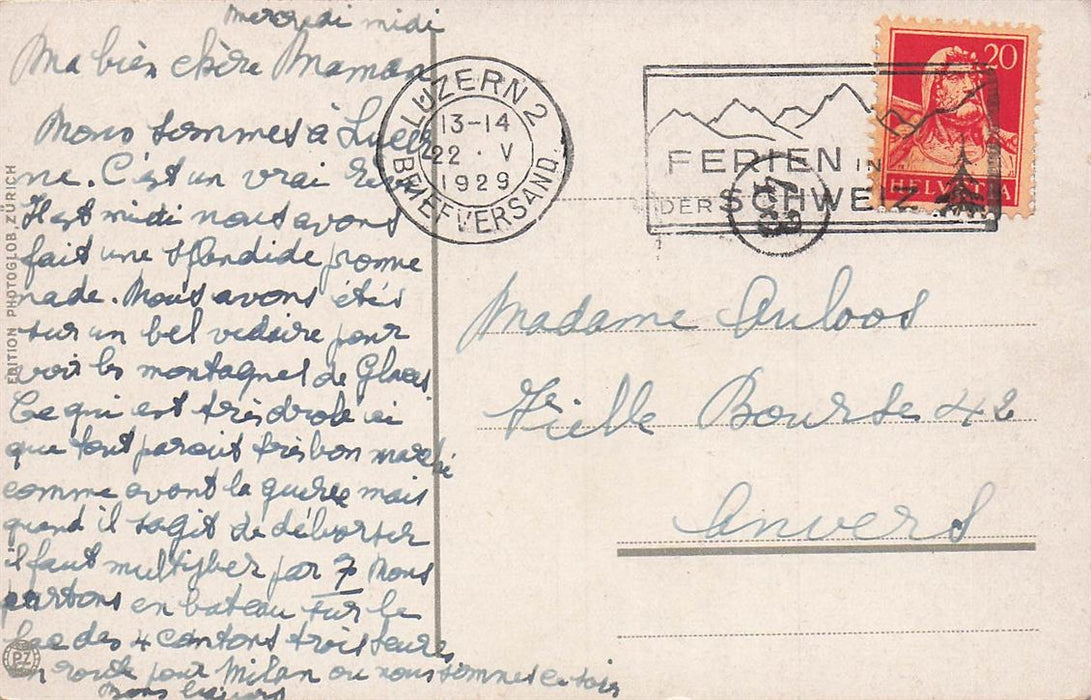 Mercredi midi
Ma bien chère Maman
Nous sommes à Lucer
ne. C'est un vrai
Il est midi nous avons
fait une splendide prome
nade. Nous avons étés
sur un bel vedaire pour
voir les montagnes de Glaces.
Ce qui est très drole ici
que tout parait très bon marché
comme avant la guerre mais
quand il s'agit de déborser
il faut multiplier par 7 Nous
partons en bateau sur le
Lac des 4 cantons trois heures
en route pour Milan ou nous sommes ce soir
Bons baisers
EDITION PHOTOGLOB, ZÜRICH
PZ
LUZERN 2
13-14
22 · V
1929
BRIEFVERSAND.
FERIEN IN
DER SCHWEIZ
20
HELVETIA
Madame Auloos
Vieille Bourse 42
Anvers